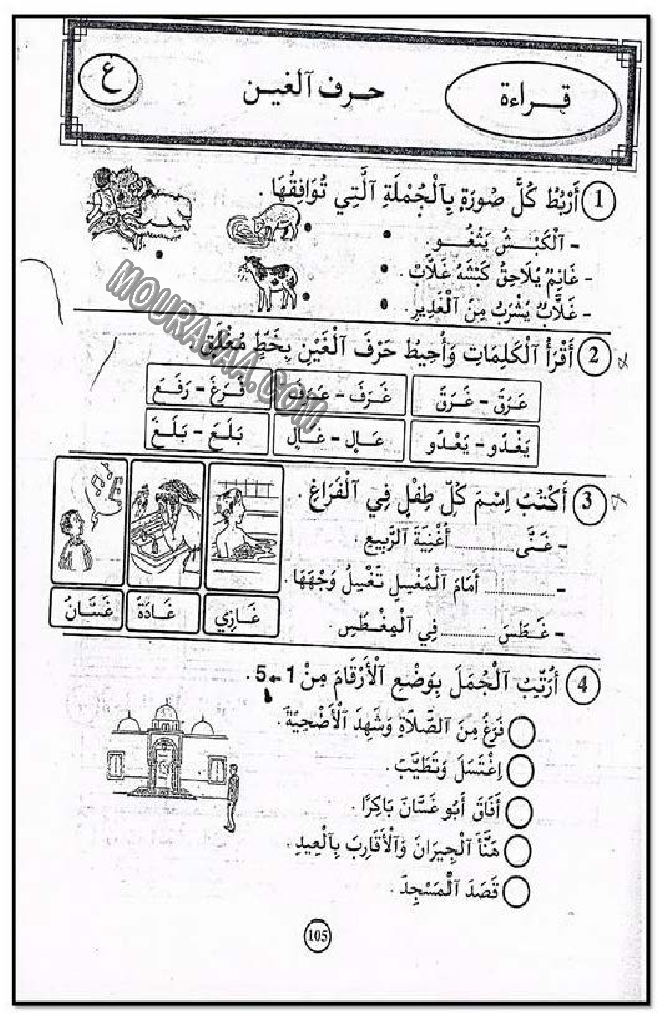 قـــراءة
حرف الغين
ع
1 أَرْبُطُ كُلَّ صُورَةٍ بِالْجُمْلَةِ الَّتِي تُوَافِقُهَا.
- الْكَبْـشُ يَثْغُـو.
- غَانِمٌ يُلَاحِقُ كَبْشَهُ غَلَّابَ.
- غَلَّابٌ يَشْرَبُ مِنَ الْغَدِيرِ.
2 أَقْرَأُ الْكَلِمَاتِ وَأُحِيطُ حَرْفَ الْغَيْنِ بِخَطٍّ مُغْلَقٍ
عَرَقَ - غَرَقَ
غَرَفَ - عَرَفَ
فَرَغَ - رَفَعَ
يَغْدُو - يَعْدُو
عَالٍ - غَالٍ
بَلَعَ - بَلَغَ
3 أَكْتُبُ اِسْمَ كُلِّ طِفْلٍ فِي الْفَرَاغِ.
- غَـنَّى .......... أُغْنِيَةَ الرَّبِيعِ.
- .......... أَمَامَ الْمَغْسِلِ تَغْسِلُ وَجْهَهَا.
- غَـطَسَ .......... فِي الْمِغْطَسِ.
غَازِي
غَـادَةُ
غَسَّانُ
4 أُرَتِّبُ الْجُمَلَ بِوَضْعِ الْأَرْقَامَ مِنْ 1 ← 5.
فَرَغَ مِنَ الصَّلَاةِ وَشَهِدَ الْأُضْحِيَّةَ.
اِغْتَسَلَ وَتَطَيَّبَ.
أَفَاقَ أَبُو غَسَّانَ بَاكِرًا.
هَنَّأَ الْجِيرَانَ وَالْأَقَارِبَ بِالْعِيدِ.
قَصَدَ الْمَسْجِدَ.
105
MOURAJAA.COM